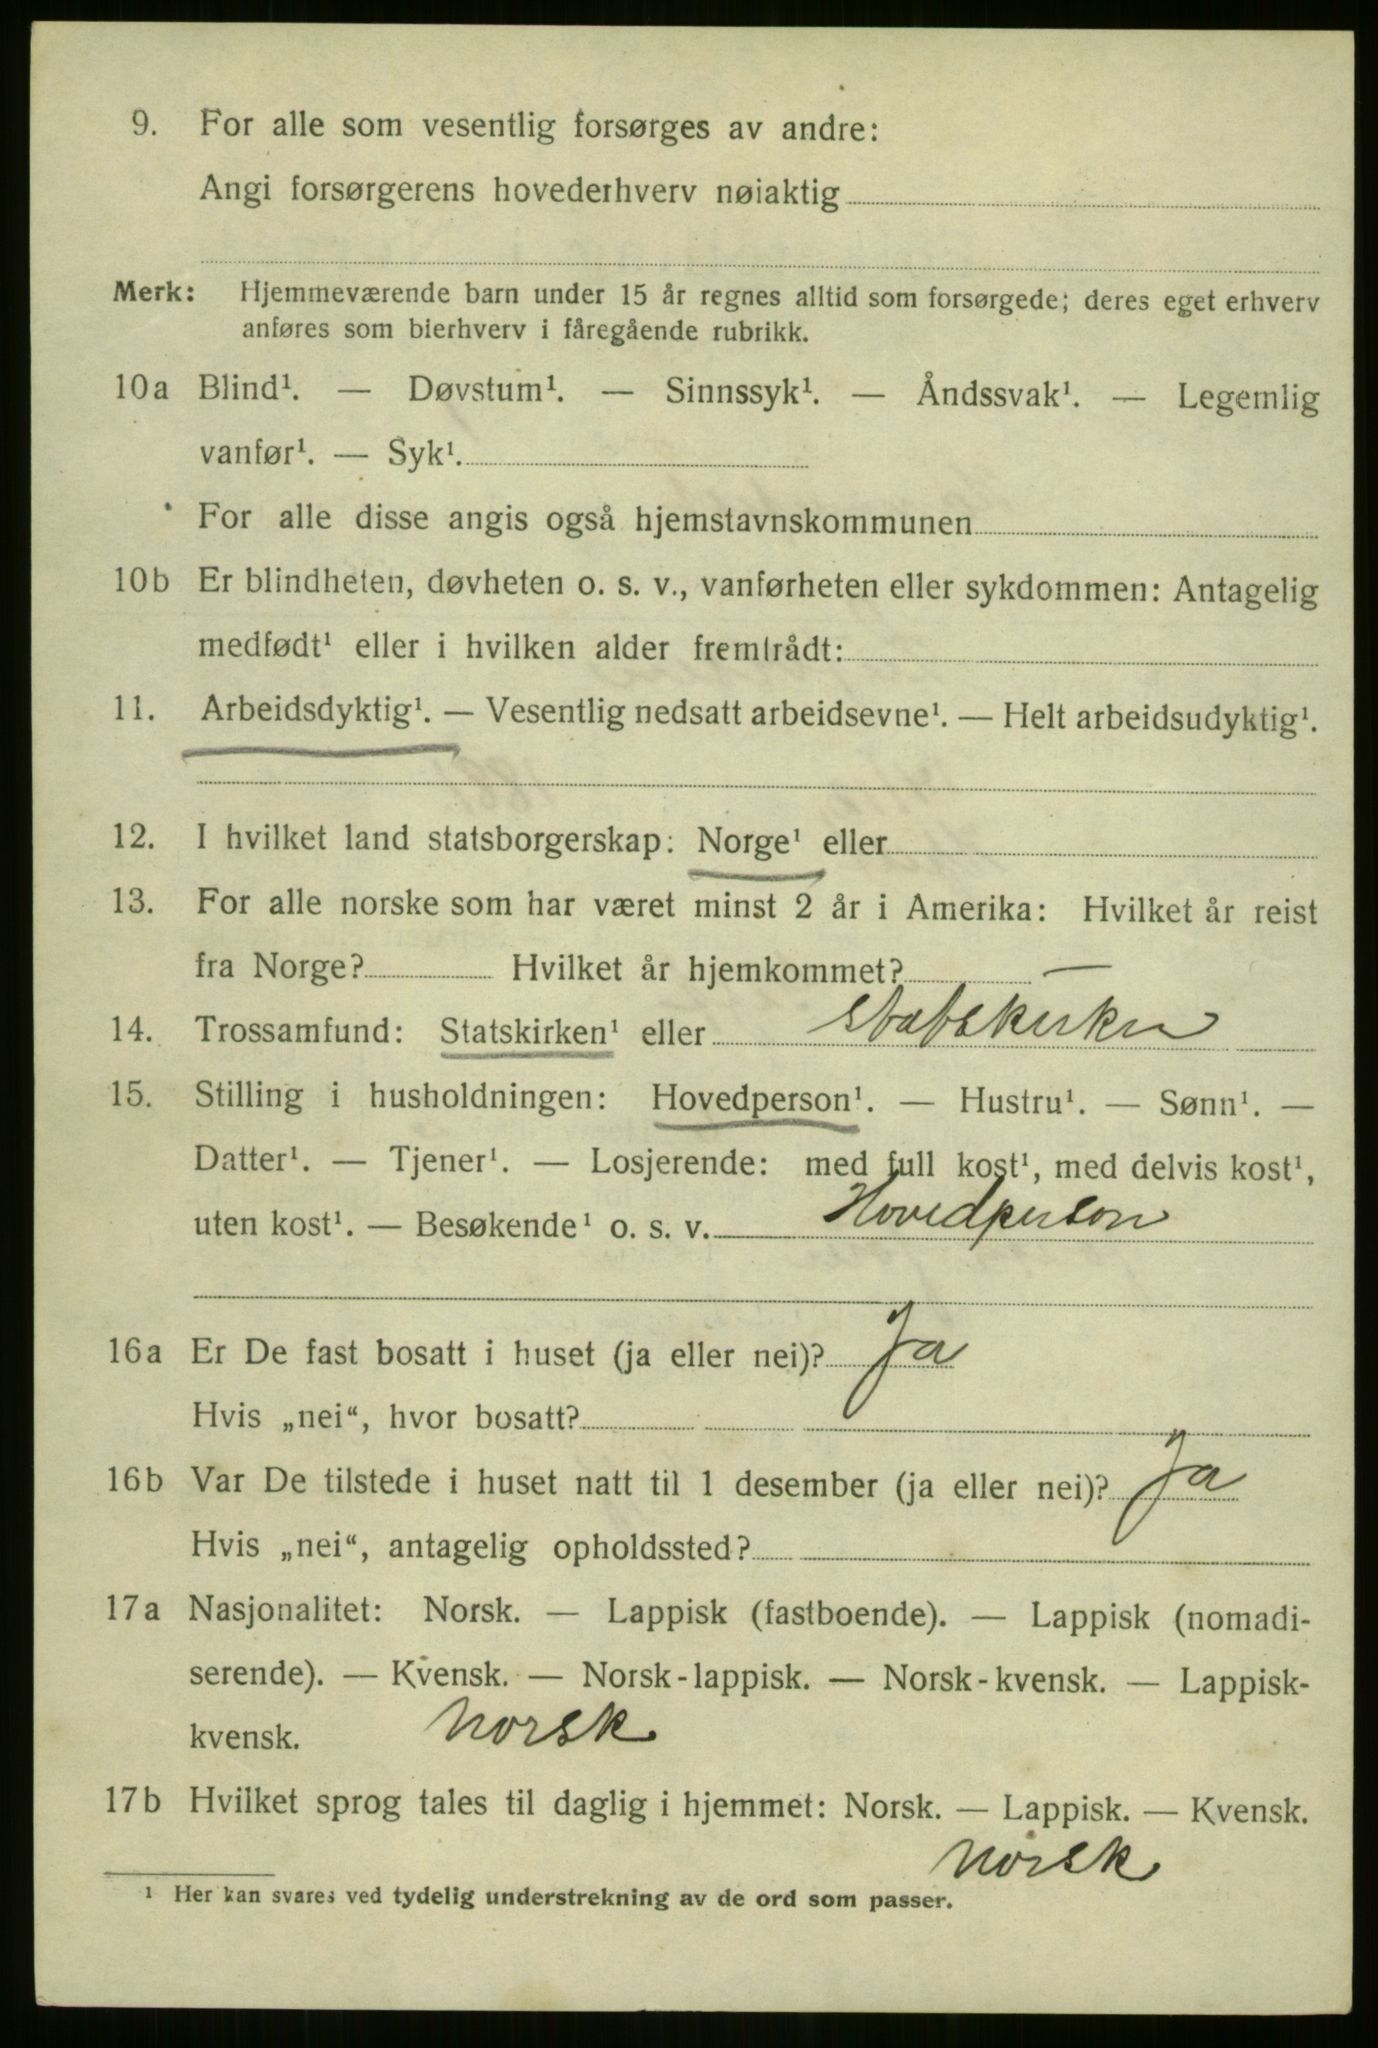 9. For alle som vesentlig forsørges av andre:
Angi forsørgerens hovederhverv nøiaktig
Merk: Hjemmeværende barn under 15 år regnes alltid som forsørgede; deres eget erhverv
anføres som bierhverv i fåregående rubrikk.
10a Blind¹. — Døvstum¹. — Sinnssyk¹. — Åndssvak¹. — Legemlig
vanfør¹. — Syk¹.
For alle disse angis også hjemstavnskommunen
10b Er blindheten, døvheten o. s. v., vanførheten eller sykdommen: Antagelig
medfødt¹ eller i hvilken alder fremtrådt:
11. Arbeidsdyktig¹. — Vesentlig nedsatt arbeidsevne¹. — Helt arbeidsudyktig¹.
12. I hvilket land statsborgerskap: Norge¹ eller
13. For alle norske som har været minst 2 år i Amerika: Hvilket år reist
fra Norge? Hvilket år hjemkommet? —
14. Trossamfund: Statskirken¹ eller Statskirken
15. Stilling i husholdningen: Hovedperson¹. — Hustru¹. — Sønn¹. —
Datter¹. — Tjener¹. — Losjerende: med full kost¹, med delvis kost¹,
uten kost¹. — Besøkende¹ o. s. v. Hovedperson
16a Er De fast bosatt i huset (ja eller nei)? Ja
Hvis „nei“, hvor bosatt?
16b Var De tilstede i huset natt til 1 desember (ja eller nei)? Ja
Hvis „nei“, antagelig opholdssted?
17a Nasjonalitet: Norsk. — Lappisk (fastboende). — Lappisk (nomadi-
serende). — Kvensk. — Norsk-lappisk. — Norsk-kvensk. — Lappisk-
kvensk. Norsk
17b Hvilket sprog tales til daglig i hjemmet: Norsk. — Lappisk. — Kvensk.
Norsk
¹ Her kan svares ved tydelig understrekning av de ord som passer.